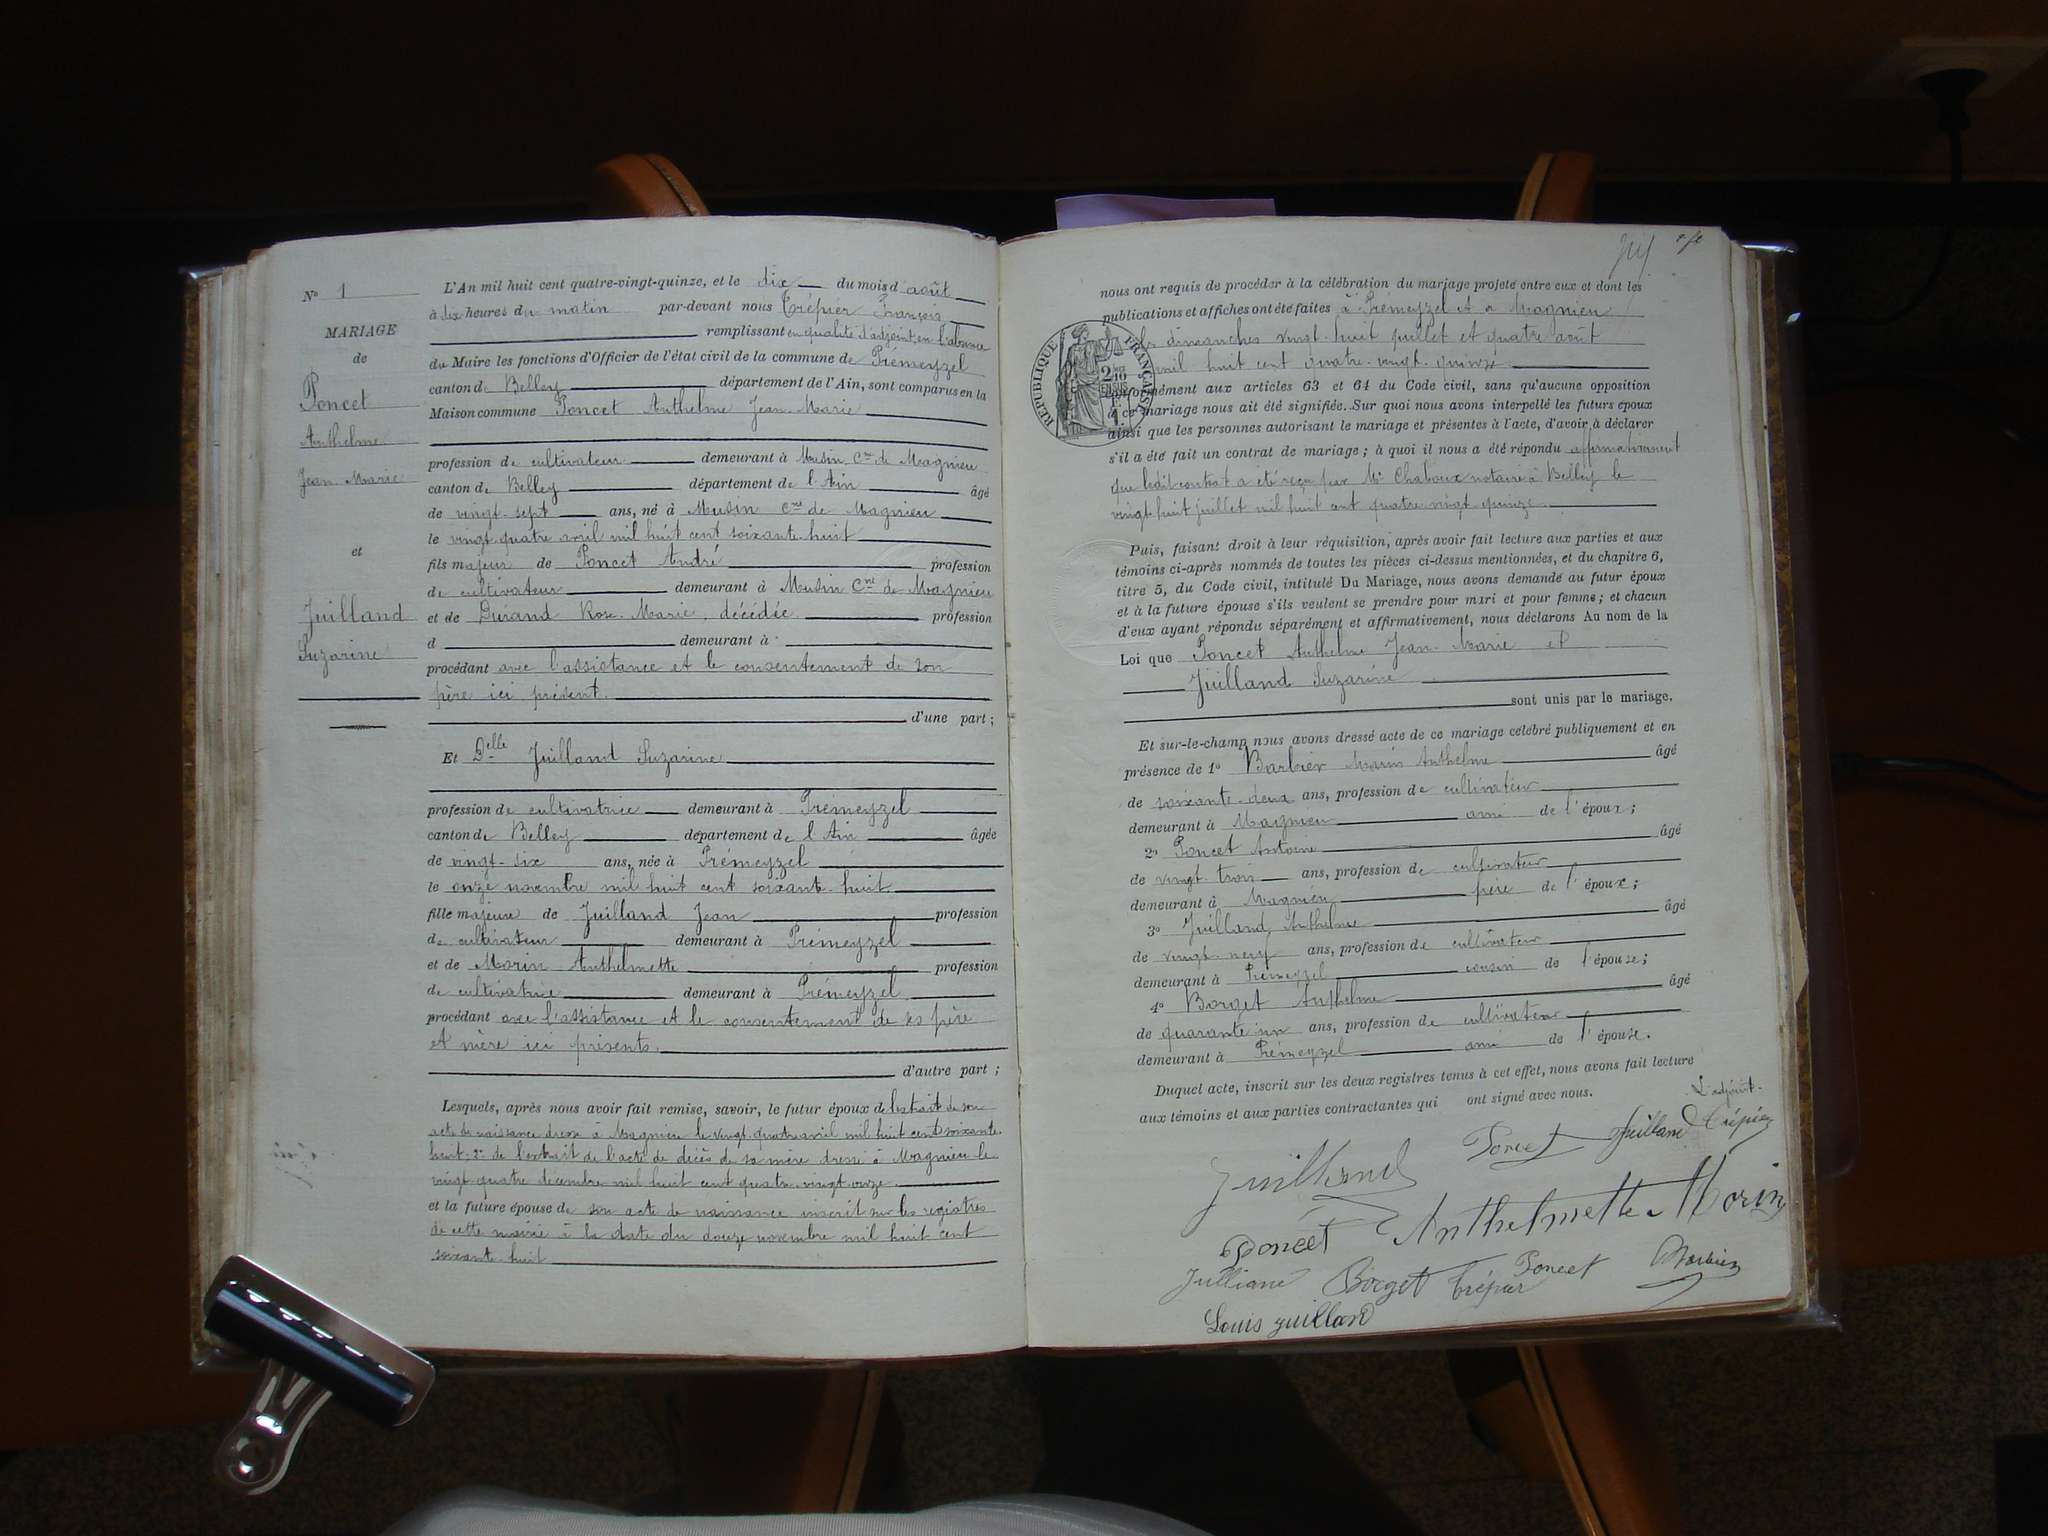 N° 1
MARIAGE
de
Poncet
Anthelme
Jean-Marie
et
Juilland
Suzarine
L'An mil huit cent quatre-vingt-quinze, et le dix du mois d août
à dix heures du matin par-devant nous Crépier François
remplissant en qualité d'adjoint en l'absence
du Maire les fonctions d'Officier de l'état civil de la commune de Prémeyzel
canton de Belley département de l'Ain, sont comparus en la
Maison commune Poncet Anthelme Jean-Marie
profession de cultivateur demeurant à Musin Cne de Magnieu
canton de Belley département de l'Ain âgé
de vingt-sept ans, né à Musin Cne de Magnieu
le vingt-quatre avril mil huit cent soixante-huit
fils majeur de Poncet André profession
de cultivateur demeurant à Musin Cne de Magnieu
et de Durand Rose-Marie, décédée profession
d demeurant à
procédant avec l'assistance et le consentement de son
père ici présent.
d'une part ;
Et Delle Juilland Suzarine
profession de cultivatrice demeurant à Prémeyzel
canton de Belley département de l'Ain âgée
de vingt-six ans, née à Prémeyzel
le onze novembre mil huit cent soixante-huit
fille majeure de Juilland Jean profession
de cultivateur demeurant à Prémeyzel
et de Morin Anthelmette profession
de cultivatrice demeurant à Prémeyzel
procédant avec l'assistance et le consentement de ses père
et mère ici présents.
d'autre part ;
Lesquels, après nous avoir fait remise, savoir, le futur époux de l'extrait de son
acte de naissance dressé à Magnieu le vingt-quatre avril mil huit cent soixante-
huit; 2° de l'extrait de l'acte de décès de sa mère dressé à Magnieu le
vingt quatre décembre mil huit cent quatre-vingt-onze.
et la future épouse de son acte de naissance inscrit sur les registres
de cette mairie à la date du douze novembre mil huit cent
soixante-huit
nous ont requis de procéder à la célébration du mariage projeté entre eux et dont les
publications et affiches ont été faites à Prémeyzel et à Magnieu
les dimanches vingt-huit juillet et quatre août
mil huit cent quatre-vingt-quinze
conformément aux articles 63 et 64 du Code civil, sans qu'aucune opposition
à ce mariage nous ait été signifiée. Sur quoi nous avons interpellé les futurs époux
ainsi que les personnes autorisant le mariage et présentes à l'acte, d'avoir à déclarer
s'il a été fait un contrat de mariage ; à quoi il nous a été répondu affirmativement
que ledit contrat a été reçu par Me Chaboux notaire à Belley le
vingt huit juillet mil huit cent quatre vingt quinze
RÉPUBLIQUE FRANÇAISE
Puis, faisant droit à leur réquisition, après avoir fait lecture aux parties et aux
témoins ci-après nommés de toutes les pièces ci-dessus mentionnées, et du chapitre 6,
titre 5, du Code civil, intitulé Du Mariage, nous avons demandé au futur époux
et à la future épouse s'ils veulent se prendre pour mari et pour femme ; et chacun
d'eux ayant répondu séparément et affirmativement, nous déclarons Au nom de la
Loi que Poncet Anthelme Jean-Marie et
Juilland Suzarine
sont unis par le mariage.
Et sur-le-champ nous avons dressé acte de ce mariage célébré publiquement et en
présence de 1° Barbier Marin Anthelme âgé
de soixante-deux ans, profession de cultivateur
demeurant à Magnieu ami de l'époux ;
2° Poncet Antoine âgé
de vingt trois ans, profession de cultivateur
demeurant à Magnieu frère de l'époux ;
3° Juilland Anthelme âgé
de vingt-neuf ans, profession de cultivateur
demeurant à Prémeyzel cousin de l'épouse ;
4° Borget Anthelme âgé
de quarante un ans, profession de cultivateur
demeurant à Prémeyzel ami de l'épouse.
Duquel acte, inscrit sur les deux registres tenus à cet effet, nous avons fait lecture
aux témoins et aux parties contractantes qui ont signé avec nous.
L'adjoint.
Juilland Poncet Juilland Crépier
Poncet Anthelmette Morin
Juilland Borget Crépier Poncet Barbier
Louis Juilland